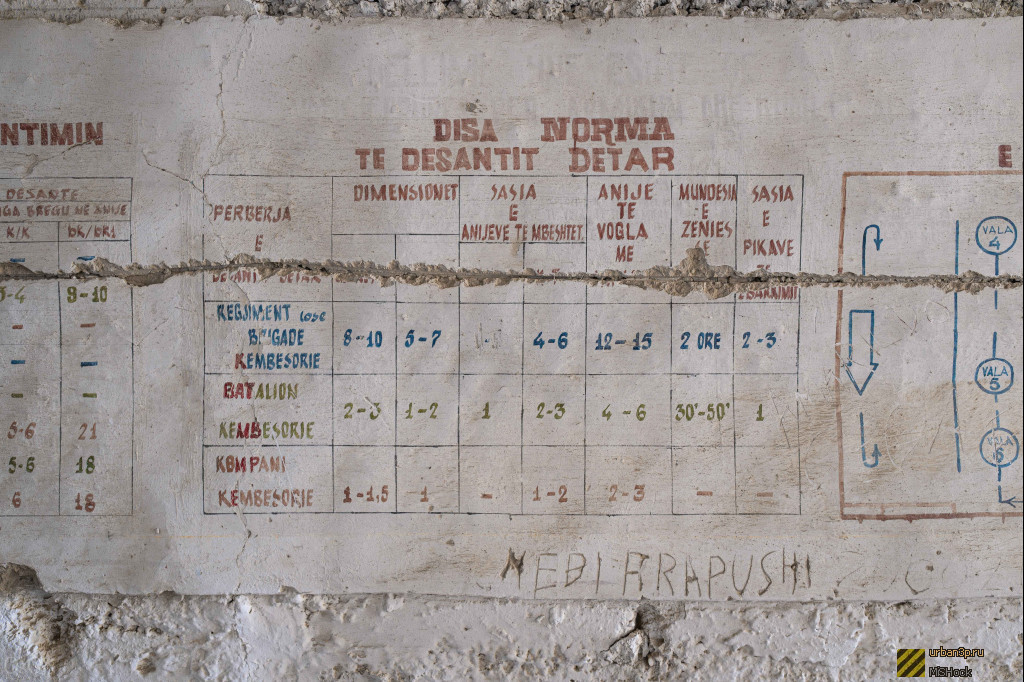 NTIMIN
DESANTE
NGA BREGU NE ANIJE
K/K BK/BK1
3-4 9-10
- -
- -
- -
5-6 21
5-6 18
6 18
DISA NORMA
TE DESANTIT DETAR
PERBERJA
E
DESANTIT DETAR
DIMENSIONET
SASIA
E
ANIJEVE TE MBESHTET
ANIJE
TE
VOGLA
ME
MUNDESIA
E
ZENIES
SASIA
E
PIKAVE
TE
ZBARKIMIT
REGJIMENT ose
BRIGADE
KEMBESORIE
8-10 5-7 4-6 12-15 2 ORE 2-3
BATALION
KEMBESORIE
2-3 1-2 1 2-3 4-6 30'-50' 1
KOMPANI
KEMBESORIE
1-1,5 1 - 1-2 2-3 - -
E
VALA
4
VALA
5
VALA
6
NEBI
urban3p.ru
MiSHock